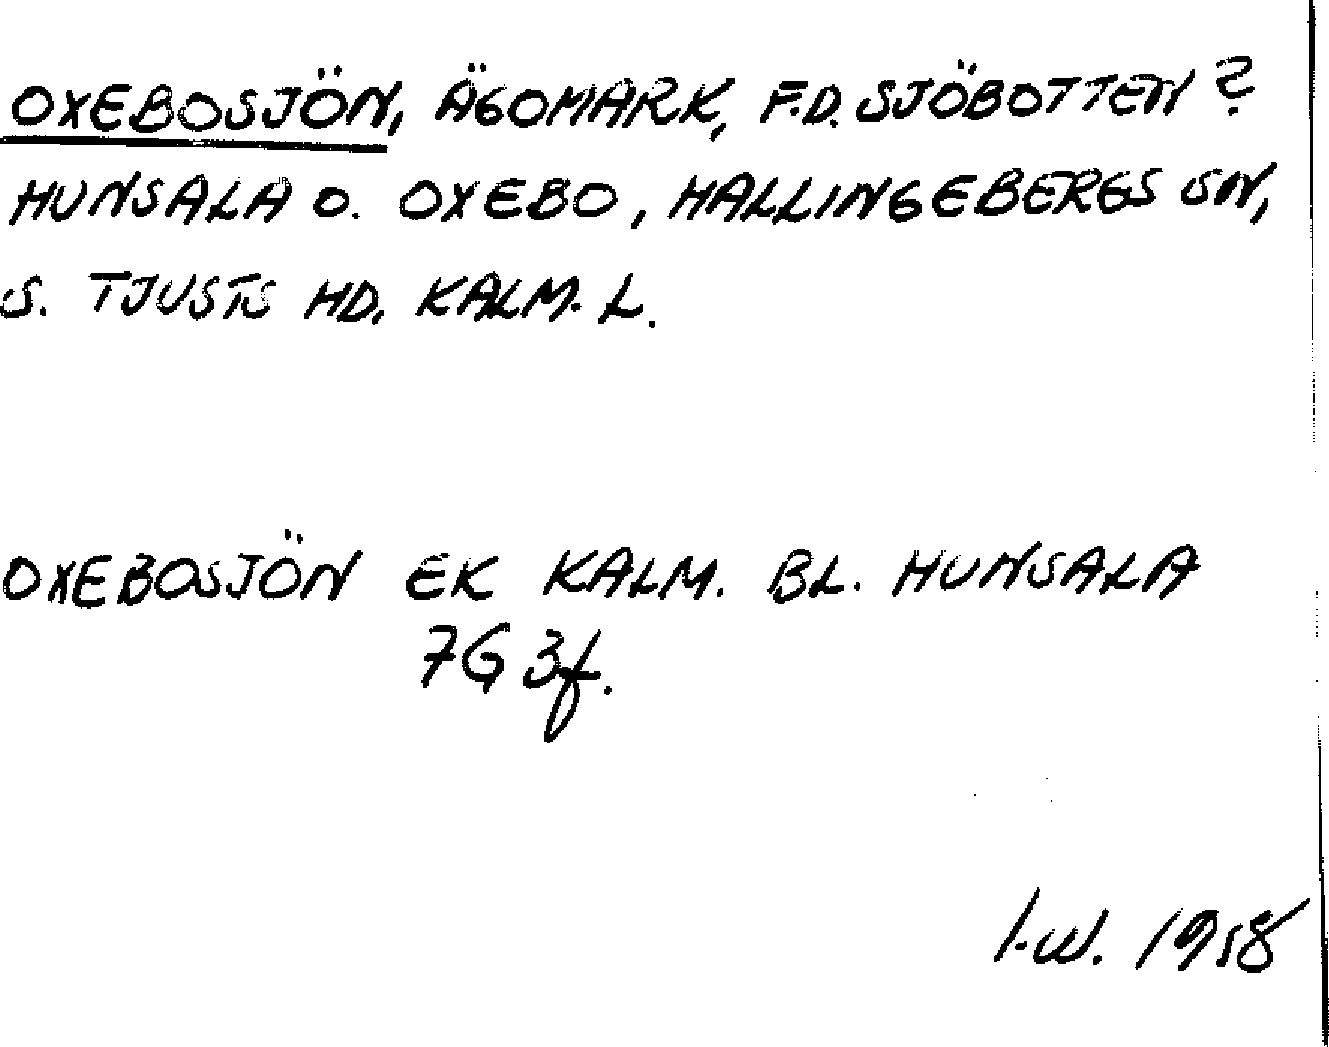 OXEBOSJÖN, ÄGOMARK, F.D. SJÖBOTTEN?
HUNSALA O. OXEBO, HALLINGEBERGS SN,
S. TJUSTS HD. KALM. L.
OXEBOSJÖN EK KALM. BL. HUNSALA
7G 3f.
I.W. 1958